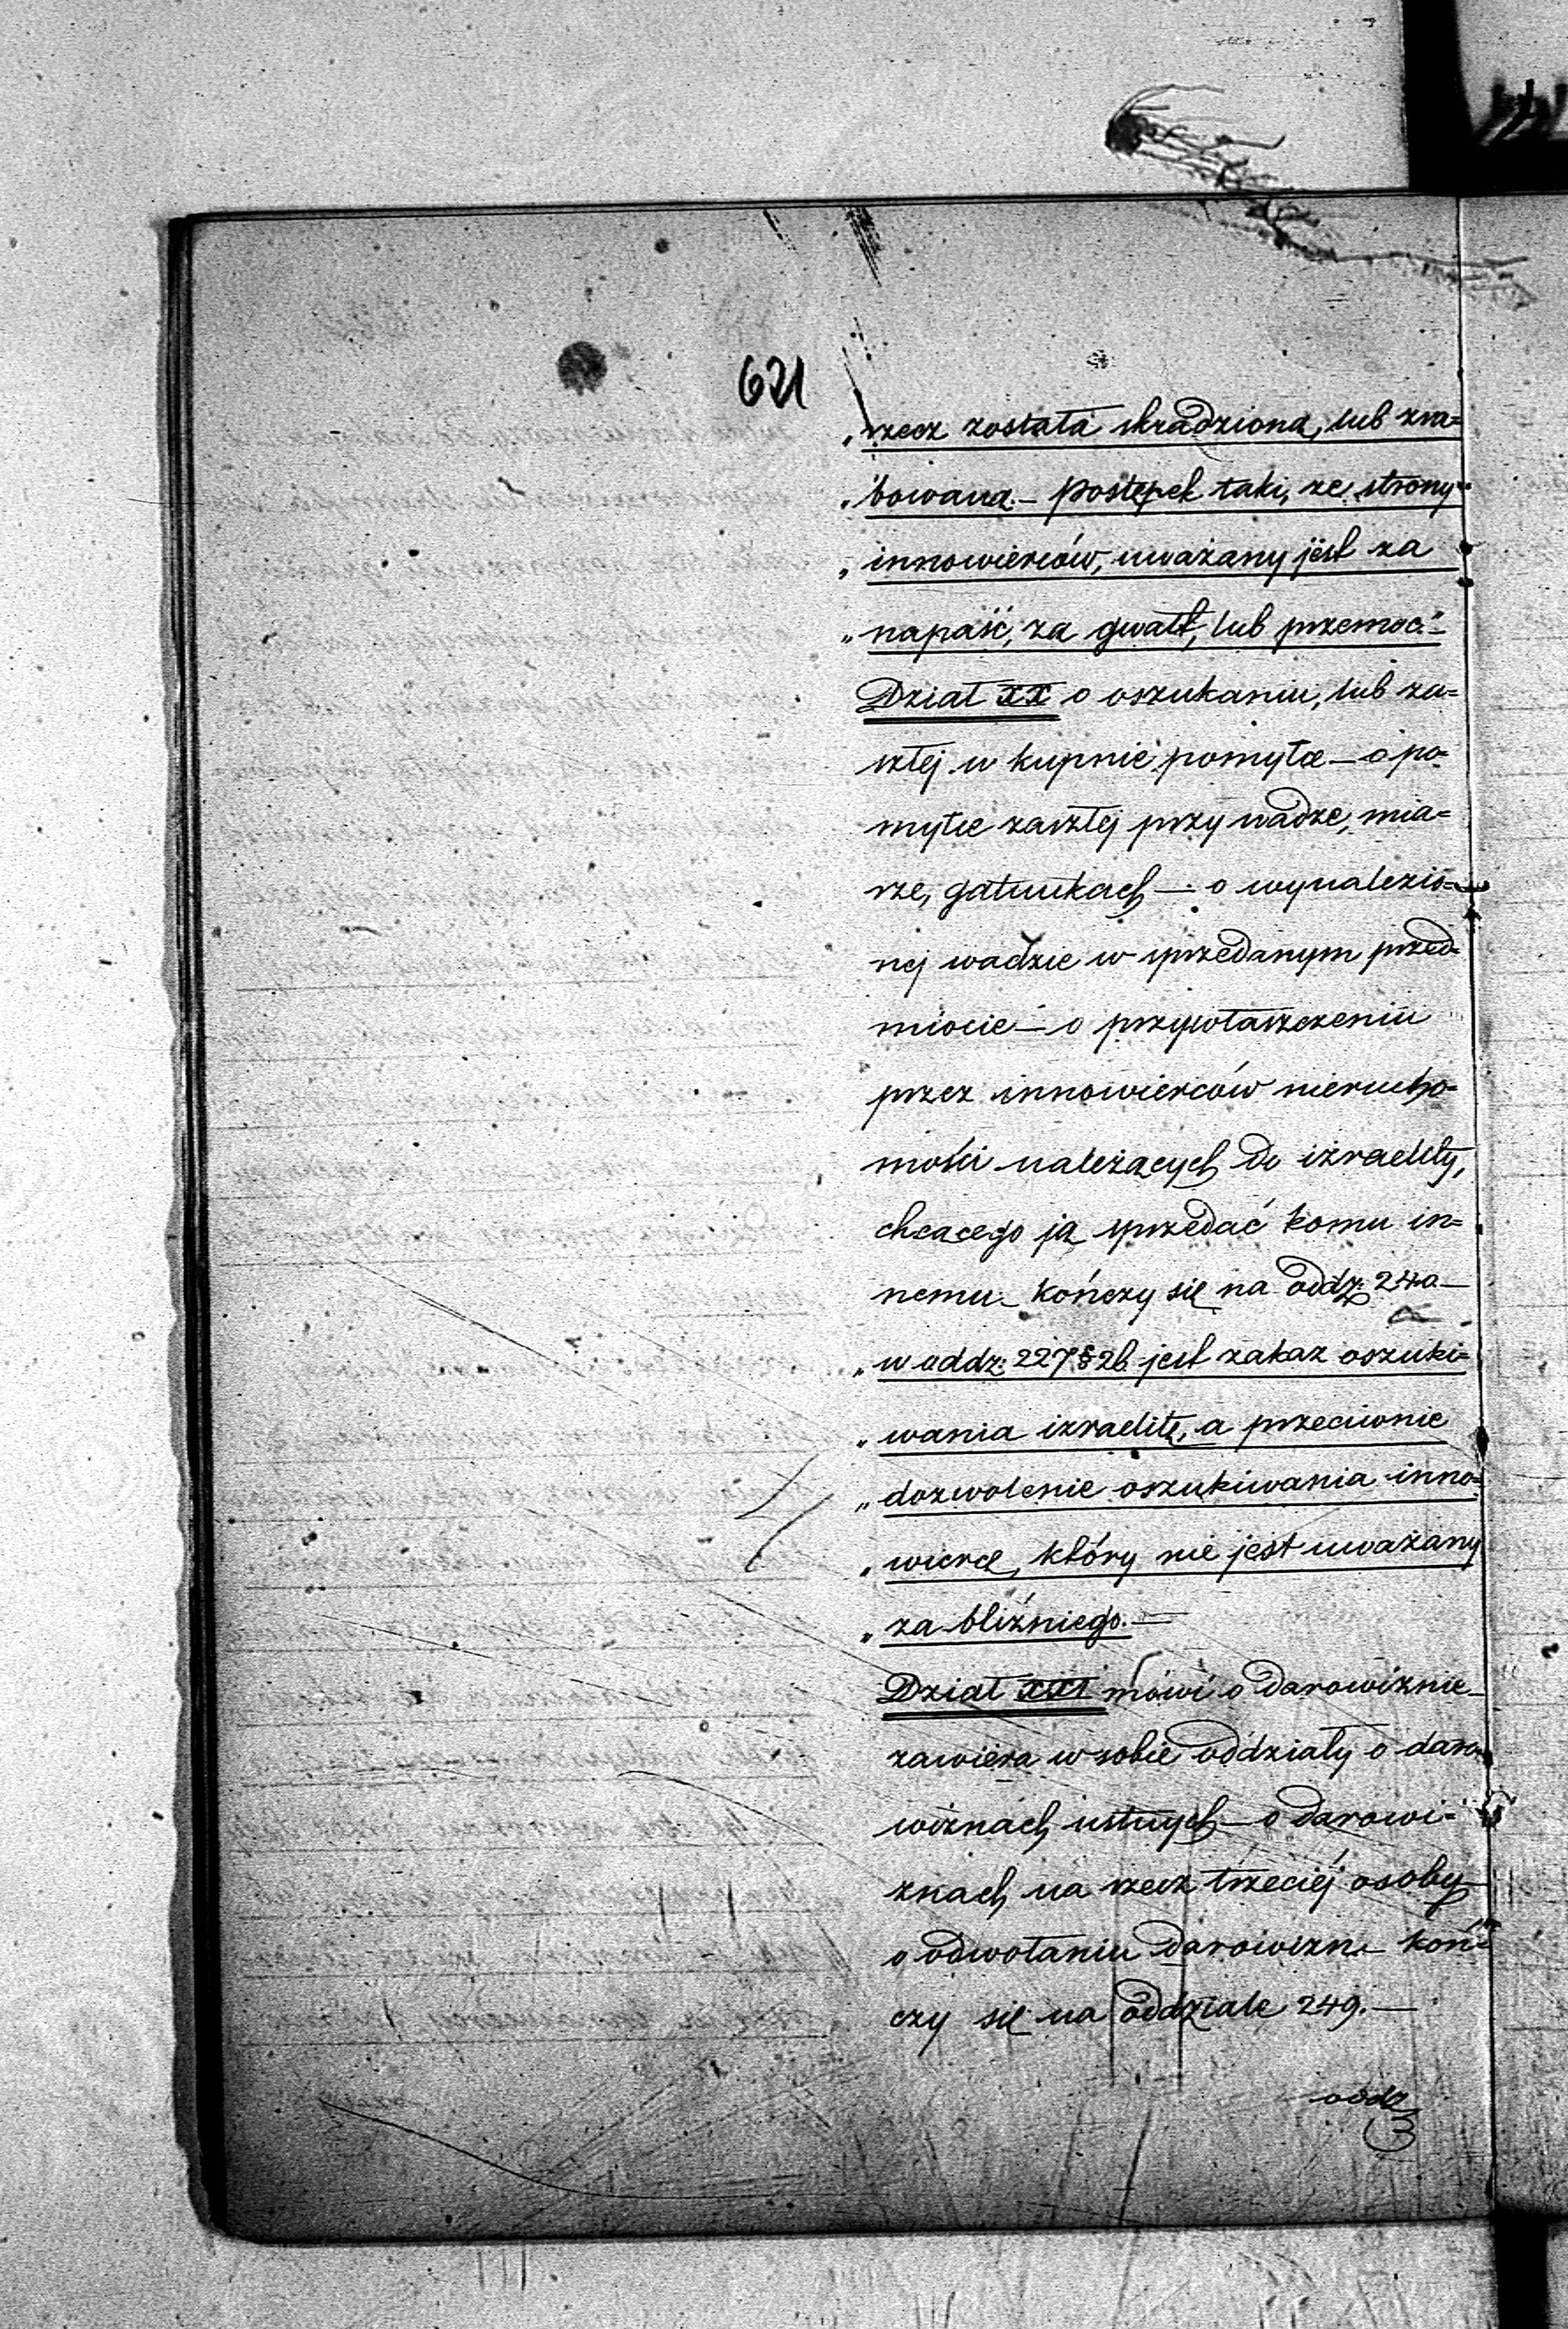 621
„rzecz została skradziona, lub zra=
„bowana. — postępek taki, ze strony
„innowierców, uważany jest za
„napaść, za gwałt, lub przemoc." —
Dział XX o oszukaniu, lub za=
szłej w kupnie pomyłce — o po=
myłce zaszłej przy wadze, mia=
rze, gatunkach — o wynalezio=
nej wadzie w sprzedanym przed=
miocie — o przywłaszczeniu
przez innowierców nierucho=
mości należących do izraelity,
chcącego ją sprzedać komu in=
nemu — kończy się na oddz: 240 —
„w oddz: 227 § 26 jest zakaz oszuki=
„wania izraelitę, a przeciwnie
„dozwolenie oszukiwania inno=
„wiercę, który nie jest uważany
„za bliźniego. —
Dział XXI mówi o darowiznie —
zawiera w sobie oddziały o daro=
wiznach ustnych — o darowi=
znach na rzecz trzeciéj osoby
o odwołaniu darowizn — koń=
czy się na oddziale 249. —
oddz